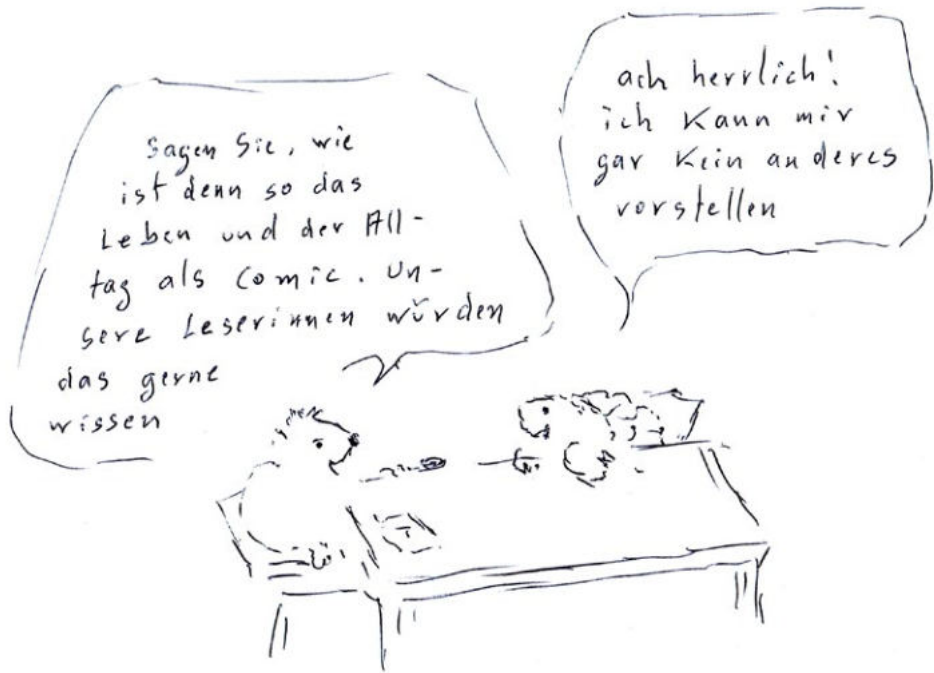 Sagen Sie, wie
ist denn so das
Leben und der All-
tag als Comic. Un-
sere Leserinnen würden
das gerne
wissen
ach herrlich!
ich kann mir
gar kein anderes
vorstellen